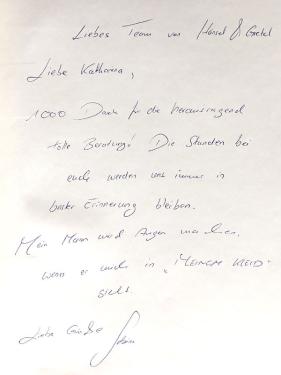 Liebes Team von Hänsel & Gretel
Liebe Katharina,
1000 Dank für die herausragend
tolle Beratung! Die Stunden bei
euch werden uns immer in
bester Erinnerung bleiben.
Mein Mann wird Augen machen,
wenn er mich in „MEINEM KLEID"
sieht.
Liebe Grüße